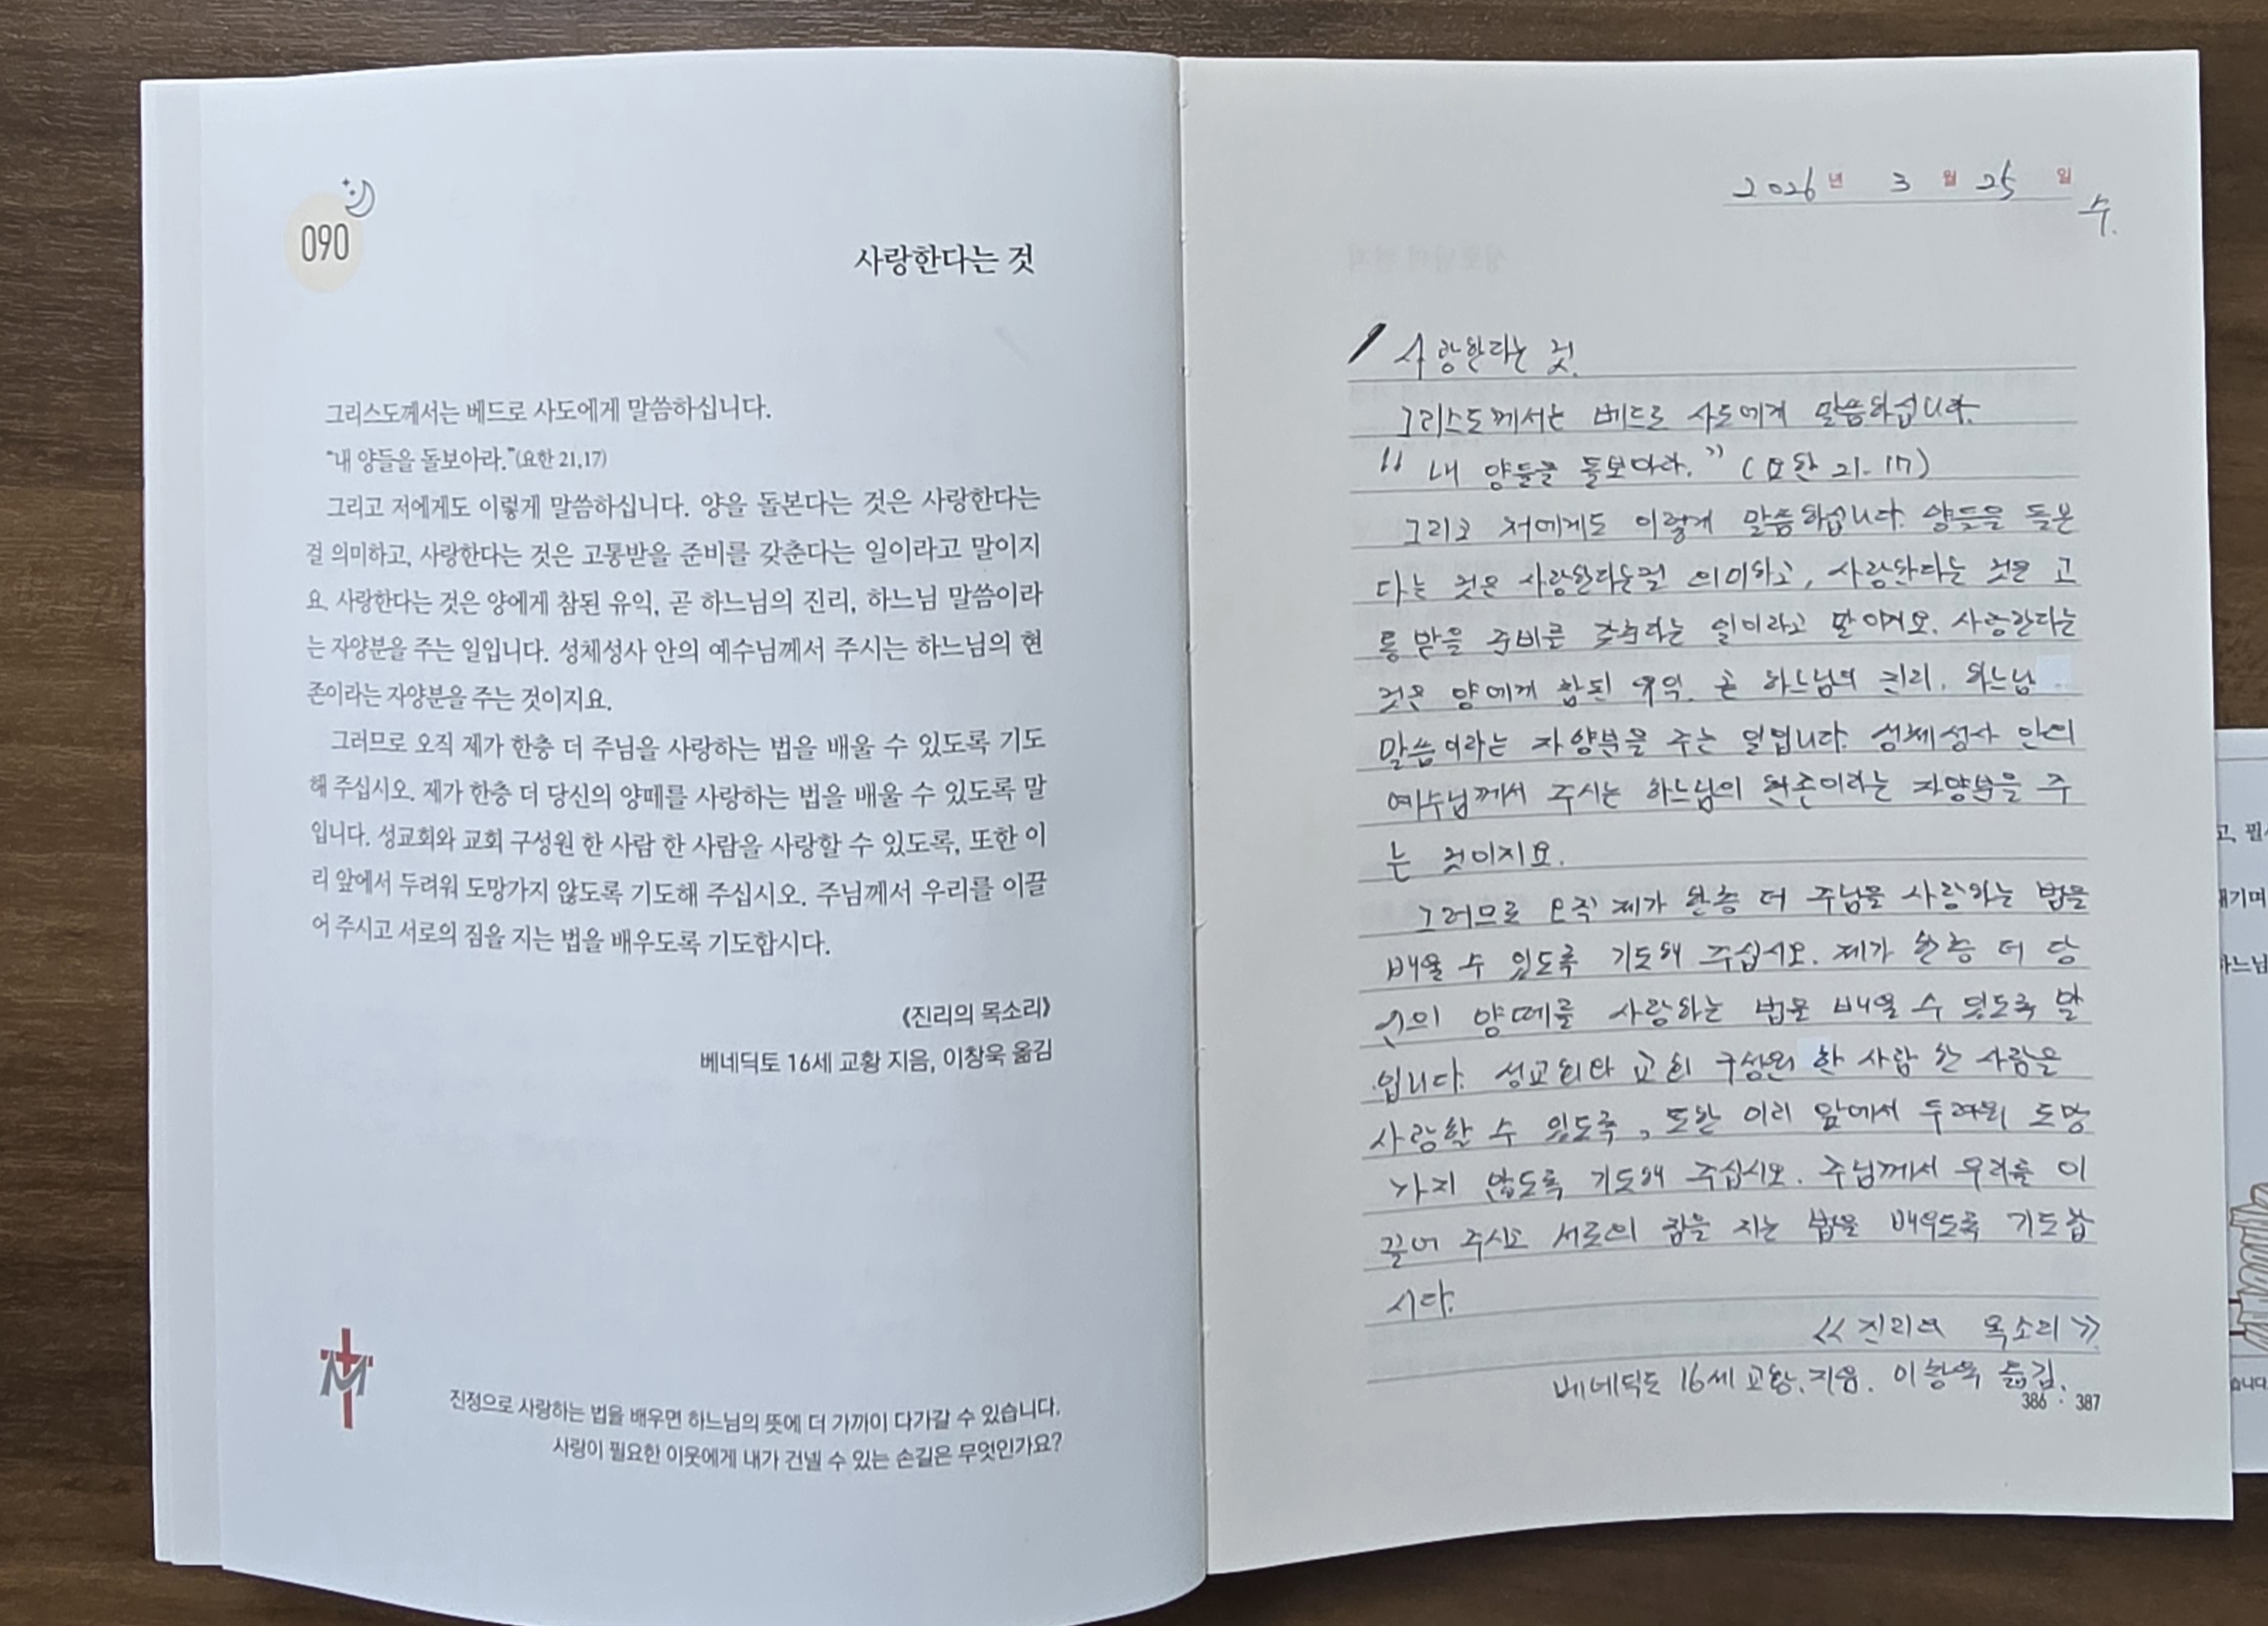 090
사랑한다는 것
그리스도께서는 베드로 사도에게 말씀하십니다.
“내 양들을 돌보아라.”(요한 21,17)
그리고 저에게도 이렇게 말씀하십니다. 양을 돌본다는 것은 사랑한다는
걸 의미하고, 사랑한다는 것은 고통받을 준비를 갖춘다는 일이라고 말이지
요. 사랑한다는 것은 양에게 참된 유익, 곧 하느님의 진리, 하느님 말씀이라
는 자양분을 주는 일입니다. 성체성사 안의 예수님께서 주시는 하느님의 현
존이라는 자양분을 주는 것이지요.
그러므로 오직 제가 한층 더 주님을 사랑하는 법을 배울 수 있도록 기도
해 주십시오. 제가 한층 더 당신의 양떼를 사랑하는 법을 배울 수 있도록 말
입니다. 성교회와 교회 구성원 한 사람 한 사람을 사랑할 수 있도록, 또한 이
리 앞에서 두려워 도망가지 않도록 기도해 주십시오. 주님께서 우리를 이끌
어 주시고 서로의 짐을 지는 법을 배우도록 기도합시다.
《진리의 목소리》
베네딕토 16세 교황 지음, 이창욱 옮김
진정으로 사랑하는 법을 배우면 하느님의 뜻에 더 가까이 다가갈 수 있습니다.
사랑이 필요한 이웃에게 내가 건넬 수 있는 손길은 무엇인가요?
2026년 3월 25일
수.
사랑한다는 것.
그리스도께서는 베드로 사도에게 말씀하십니다.
“내 양들을 돌보아라.” (요한 21. 17)
그리고 저에게도 이렇게 말씀하십니다. 양들을 돌본
다는 것은 사랑한다는걸 의미하고, 사랑한다는 것은 고
통받을 준비를 갖춘다는 일이라고 말이지요. 사랑한다는
것은 양에게 참된 유익. 곧 하느님의 진리. 하느님
말씀이라는 자양분을 주는 일입니다. 성체성사 안의
예수님께서 주시는 하느님의 현존이라는 자양분을 주
는 것이지요.
그러므로 오직 제가 한층 더 주님을 사랑하는 법을
배울 수 있도록 기도해 주십시오. 제가 한층 더 당
신의 양떼를 사랑하는 법을 배울 수 있도록 말
입니다. 성교회와 교회 구성원 한 사람 한 사람을
사랑할 수 있도록, 또한 이리 앞에서 두려워 도망
가지 않도록 기도해 주십시오. 주님께서 우리를 이
끌어 주시고 서로의 짐을 지는 법을 배우도록 기도합
시다.
《진리의 목소리》
베네딕도 16세 교황.지음. 이창욱 옮김.
386 · 387